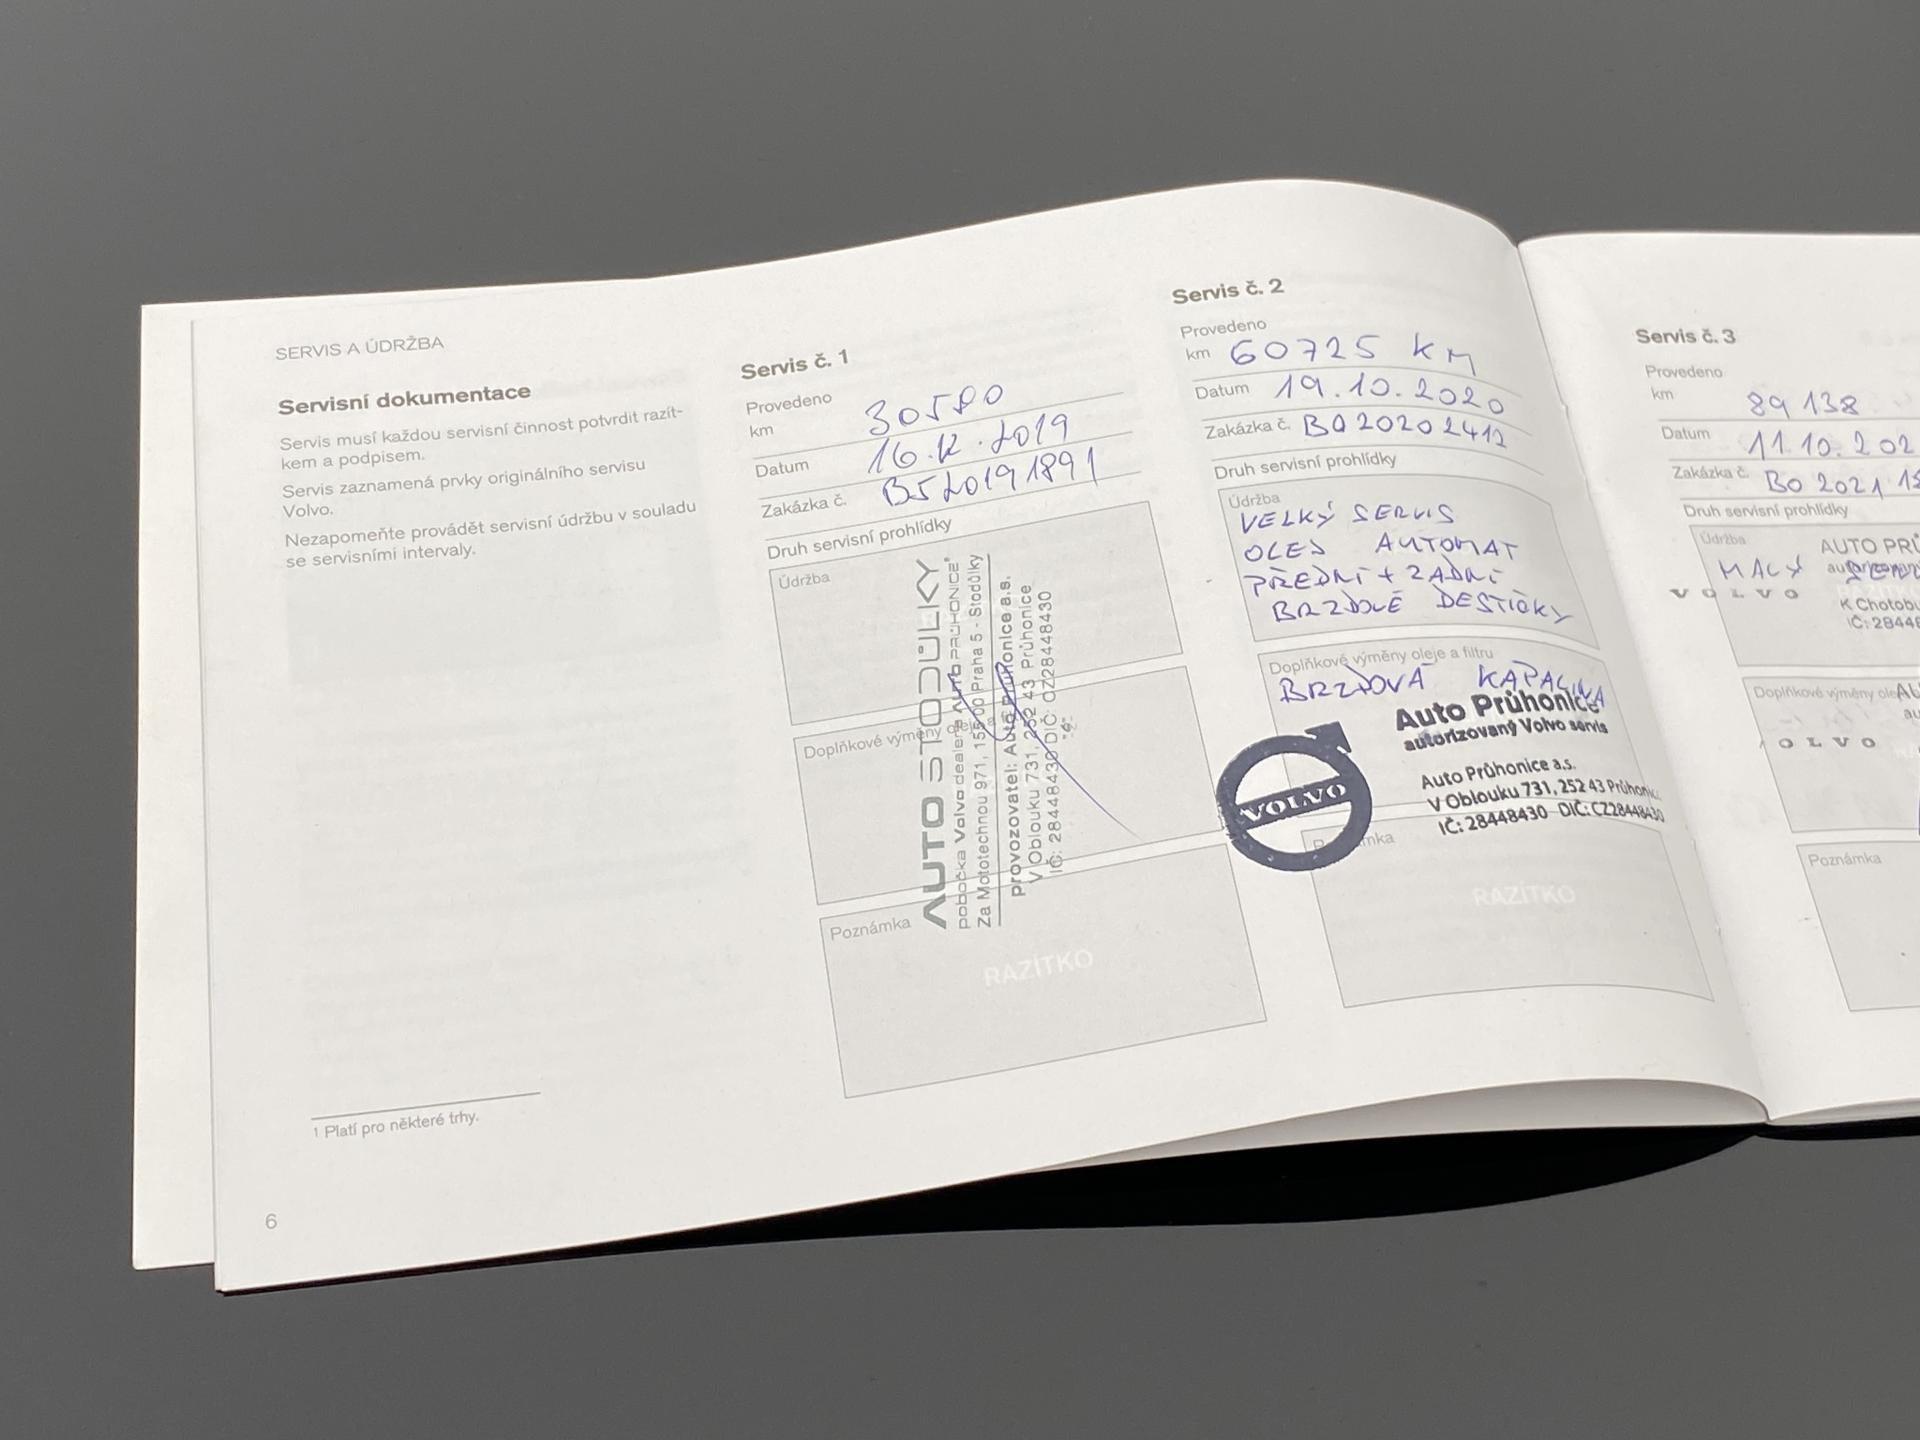 SERVIS A ÚDRŽBA
Servisní dokumentace
Servis musí každou servisní činnost potvrdit razít-
kem a podpisem.
Servis zaznamená prvky originálního servisu
Volvo.
Nezapomeňte provádět servisní údržbu v souladu
se servisními intervaly.
1 Platí pro některé trhy.
6
Servis č. 1
Provedeno
km 30580
Datum 16.12.2019
Zakázka č. B520191891
Druh servisní prohlídky
Údržba
Doplňkové výměny oleje a
Poznámka
RAZÍTKO
AUTO STODŮLKY
pobočka Volvo dealera AUTO PRŮHONICE
Za Mototechnou 971, 155 00 Praha 5 - Stodůlky
provozovatel: Auto Průhonice a.s.
V Oblouku 731, 252 43 Průhonice
IČ: 28448430 DIČ: CZ28448430
"6"
Servis č. 2
Provedeno
km 60725 KM
Datum 19.10.2020
Zakázka č. BO20202412
Druh servisní prohlídky
Údržba
VELKÝ SERVIS
OLEJ AUTOMAT
PŘEDNÍ + ZADNÍ
BRZDOVÉ DESTIČKY
Doplňkové výměny oleje a filtru
BRZDOVÁ KAPALINA
Auto Průhonice
autorizovaný Volvo servis
VOLVO
Auto Průhonice a.s.
V Oblouku 731, 252 43 Průhonic
IČ: 28448430 DIČ: CZ28448430
Poznámka
RAZÍTKO
Servis č. 3
Provedeno
km 89 138
Datum 11.10.202
Zakázka č. BO 2021
Druh servisní prohlídky
Údržba
AUTO PRŮ
MALÝ
VOLVO
K Chotobu
IČ: 2844
Doplňkové výměny ole
VOLVO
Poznámka